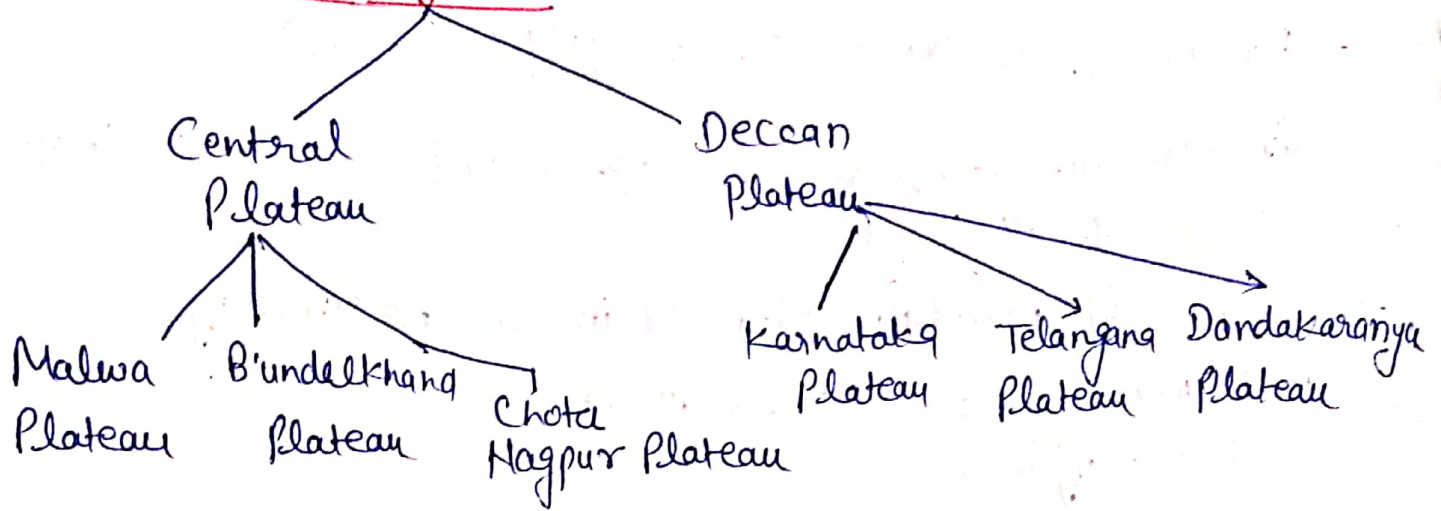 Central
Plateau
Deccan
Plateau
Malwa
Plateau
B'undelkhand
Plateau
Chota
Nagpur Plateau
Karnataka
Plateau
Telangana
Plateau
Dandakaranya
Plateau